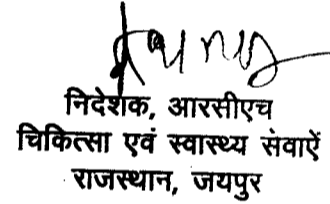 निदेशक, आरसीएच
चिकित्सा एवं स्वास्थ्य संवाऐं
राजस्थान, जयपुर